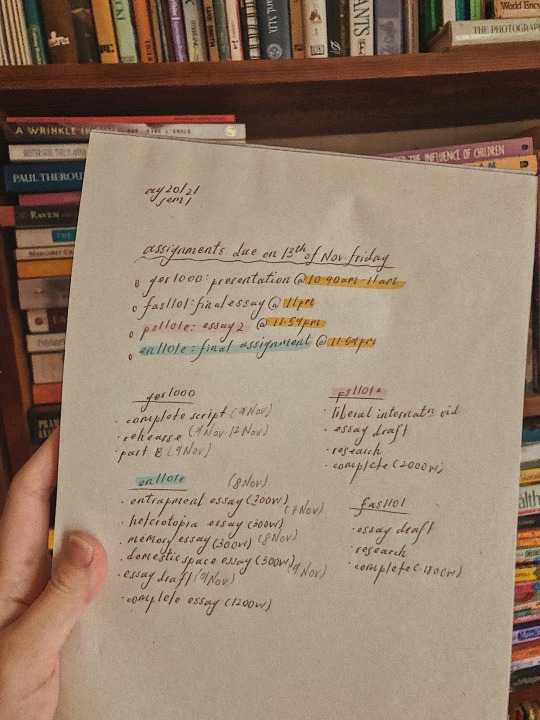 A WRINKLE IN
L'ENGLE
PAUL THEROU
RAVEN
THE INFLUENCE OF CHILDREN
THE PHOTOGRAP
World Ency
ay20/21
sem1
assignments due on 13th of Nov friday
ger1000: presentation @ 10.40am-11am
fas1101: final essay @ 11pm
ps1101e: essay 2 @ 11.59pm
en1101e: final assignment @ 11.59pm
ger1000
· complete script (9Nov)
· rehearse (9Nov-12Nov)
· part B (9Nov)
ps1101e
· liberal internatn vid
· essay draft
· research
· complete (2000w)
en1101e (8Nov)
· entrapment essay (300w)
(7Nov)
· heterotopia essay (300w)
· memory essay (300w) (8Nov)
· domestic space essay (300w)
(9Nov)
· essay draft (9Nov)
· complete essay (1200w)
fas1101
· essay draft
· research
· complete (1800w)